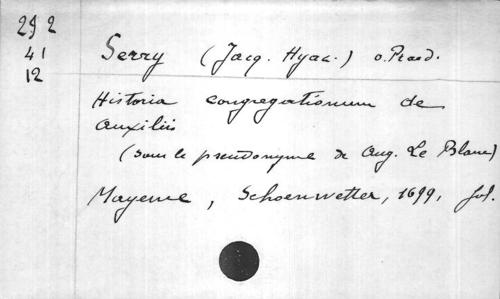 292
41
12
Serry (Jacq. Hyac.) o. Praed.
Historia congregationum de
auxiliis
(sous le pseudonyme de Aug. Le Blanc)
Mayence, Schoenwetter, 1699, fol.